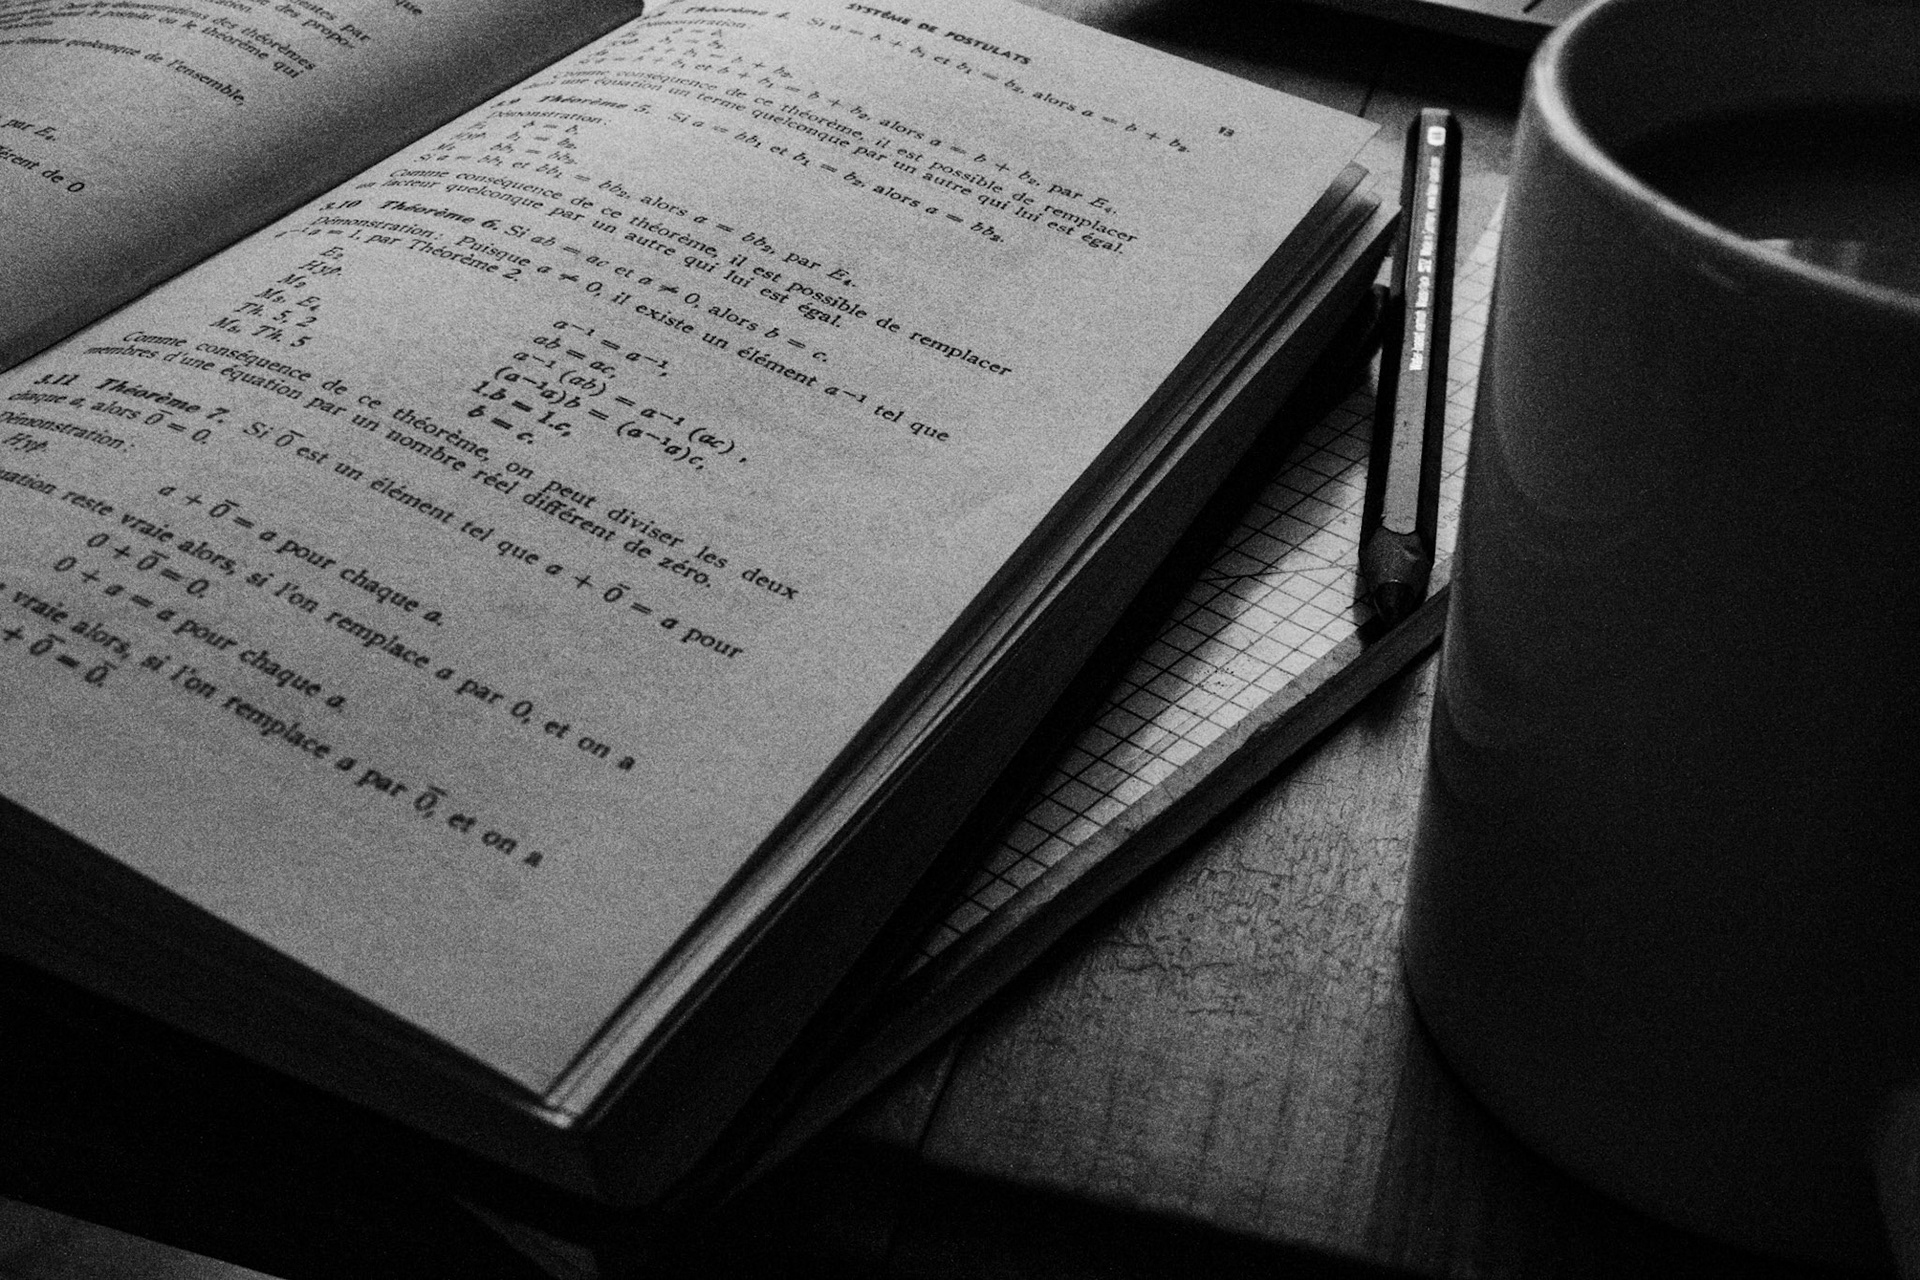 que
par
des propo-
des théorèmes
le postulat ou le théorème qui
élément quelconque de l'ensemble,
par E₄.
de 0
SYSTÈME DE POSTULATS
13
Théorème 4. Si a = b + b₁ et b₁ = b₂, alors a = b + b₂.
Démonstration:
b + b₁ = b + b₂.
Si a = b + b₁ et b + b₁ = b + b₂, alors a = b + b₂, par E₄.
Comme conséquence de ce théorème, il est possible de remplacer
dans une équation un terme quelconque par un autre qui lui est égal.
3.9 Théorème 5. Si a = bb₁ et b₁ = b₂, alors a = bb₂.
Démonstration:
b = b,
Hyp. b₁ = b₂.
bb₁ = bb₂.
Si a = bb₁ et bb₁ = bb₂, alors a = bb₂, par E₄.
Comme conséquence de ce théorème, il est possible de remplacer
un facteur quelconque par un autre qui lui est égal.
3.10 Théorème 6. Si ab = ac et a ≠ 0, alors b = c.
Démonstration: Puisque a ≠ 0, il existe un élément a⁻¹ tel que
a⁻¹a = 1, par Théorème 2.
E₂ a⁻¹ = a⁻¹,
Hyp. ab = ac,
M₂ a⁻¹ (ab) = a⁻¹ (ac),
M₃, E₄ (a⁻¹a)b = (a⁻¹a)c,
Th. 5, 2 1.b = 1.c,
Th. 5 b = c.
Comme conséquence de ce théorème, on peut diviser les deux
membres d'une équation par un nombre réel différent de zéro.
3.11 Théorème 7. Si 0̄ est un élément tel que a + 0̄ = a pour
chaque a, alors 0̄ = 0.
Démonstration:
Hyp. a + 0̄ = a pour chaque a.
reste vraie alors, si l'on remplace a par 0, et on a
0 + 0̄ = 0.
0 + a = a pour chaque a.
vraie alors, si l'on remplace a par 0̄, et on a
+ 0̄ = 0̄.